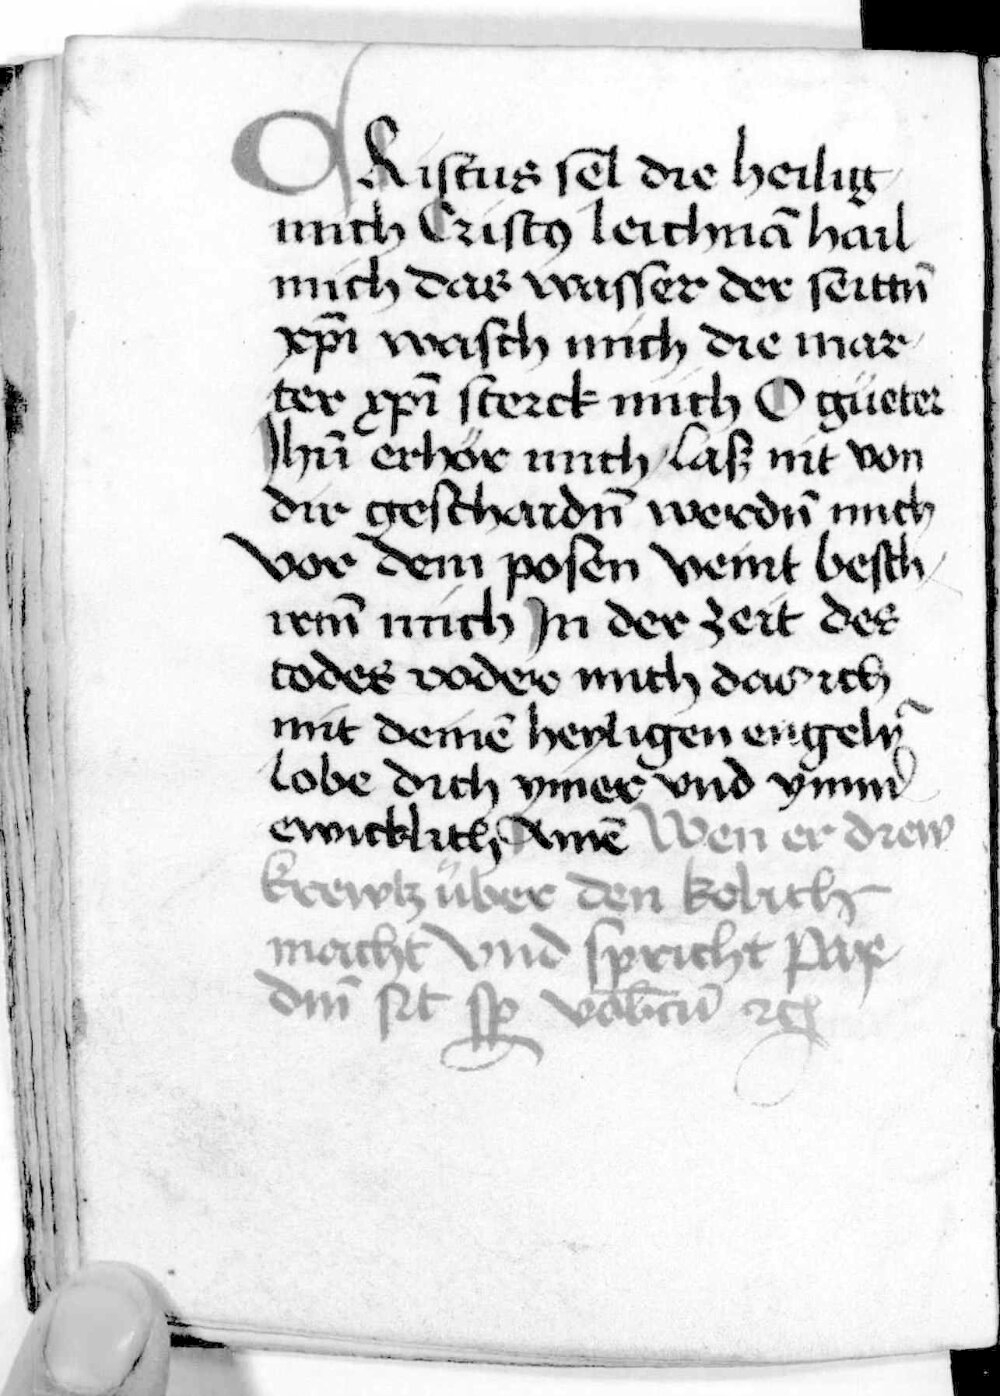 CRistus sel̄ die heilig
mich Cristꝰ leichnā hail
mich das wasser der seittn̄
xp̄i wasch mich die mar
ter xp̄i sterck mich O güeter
Jhū erhör mich laß nit von
dir geschaidn̄ werdn̄ mich
vor dem posen veint besch
irm̄ mich In der zeit des
todes voder mich das ich
mit deinē heyligen engeln̄
lobe dich ymer vnd ymm̄
ewicklich Amē Wen er drew
krewtz über den kelich
macht vnd spricht Pax
dn̄i sit sp̄ vobcū ꝛc